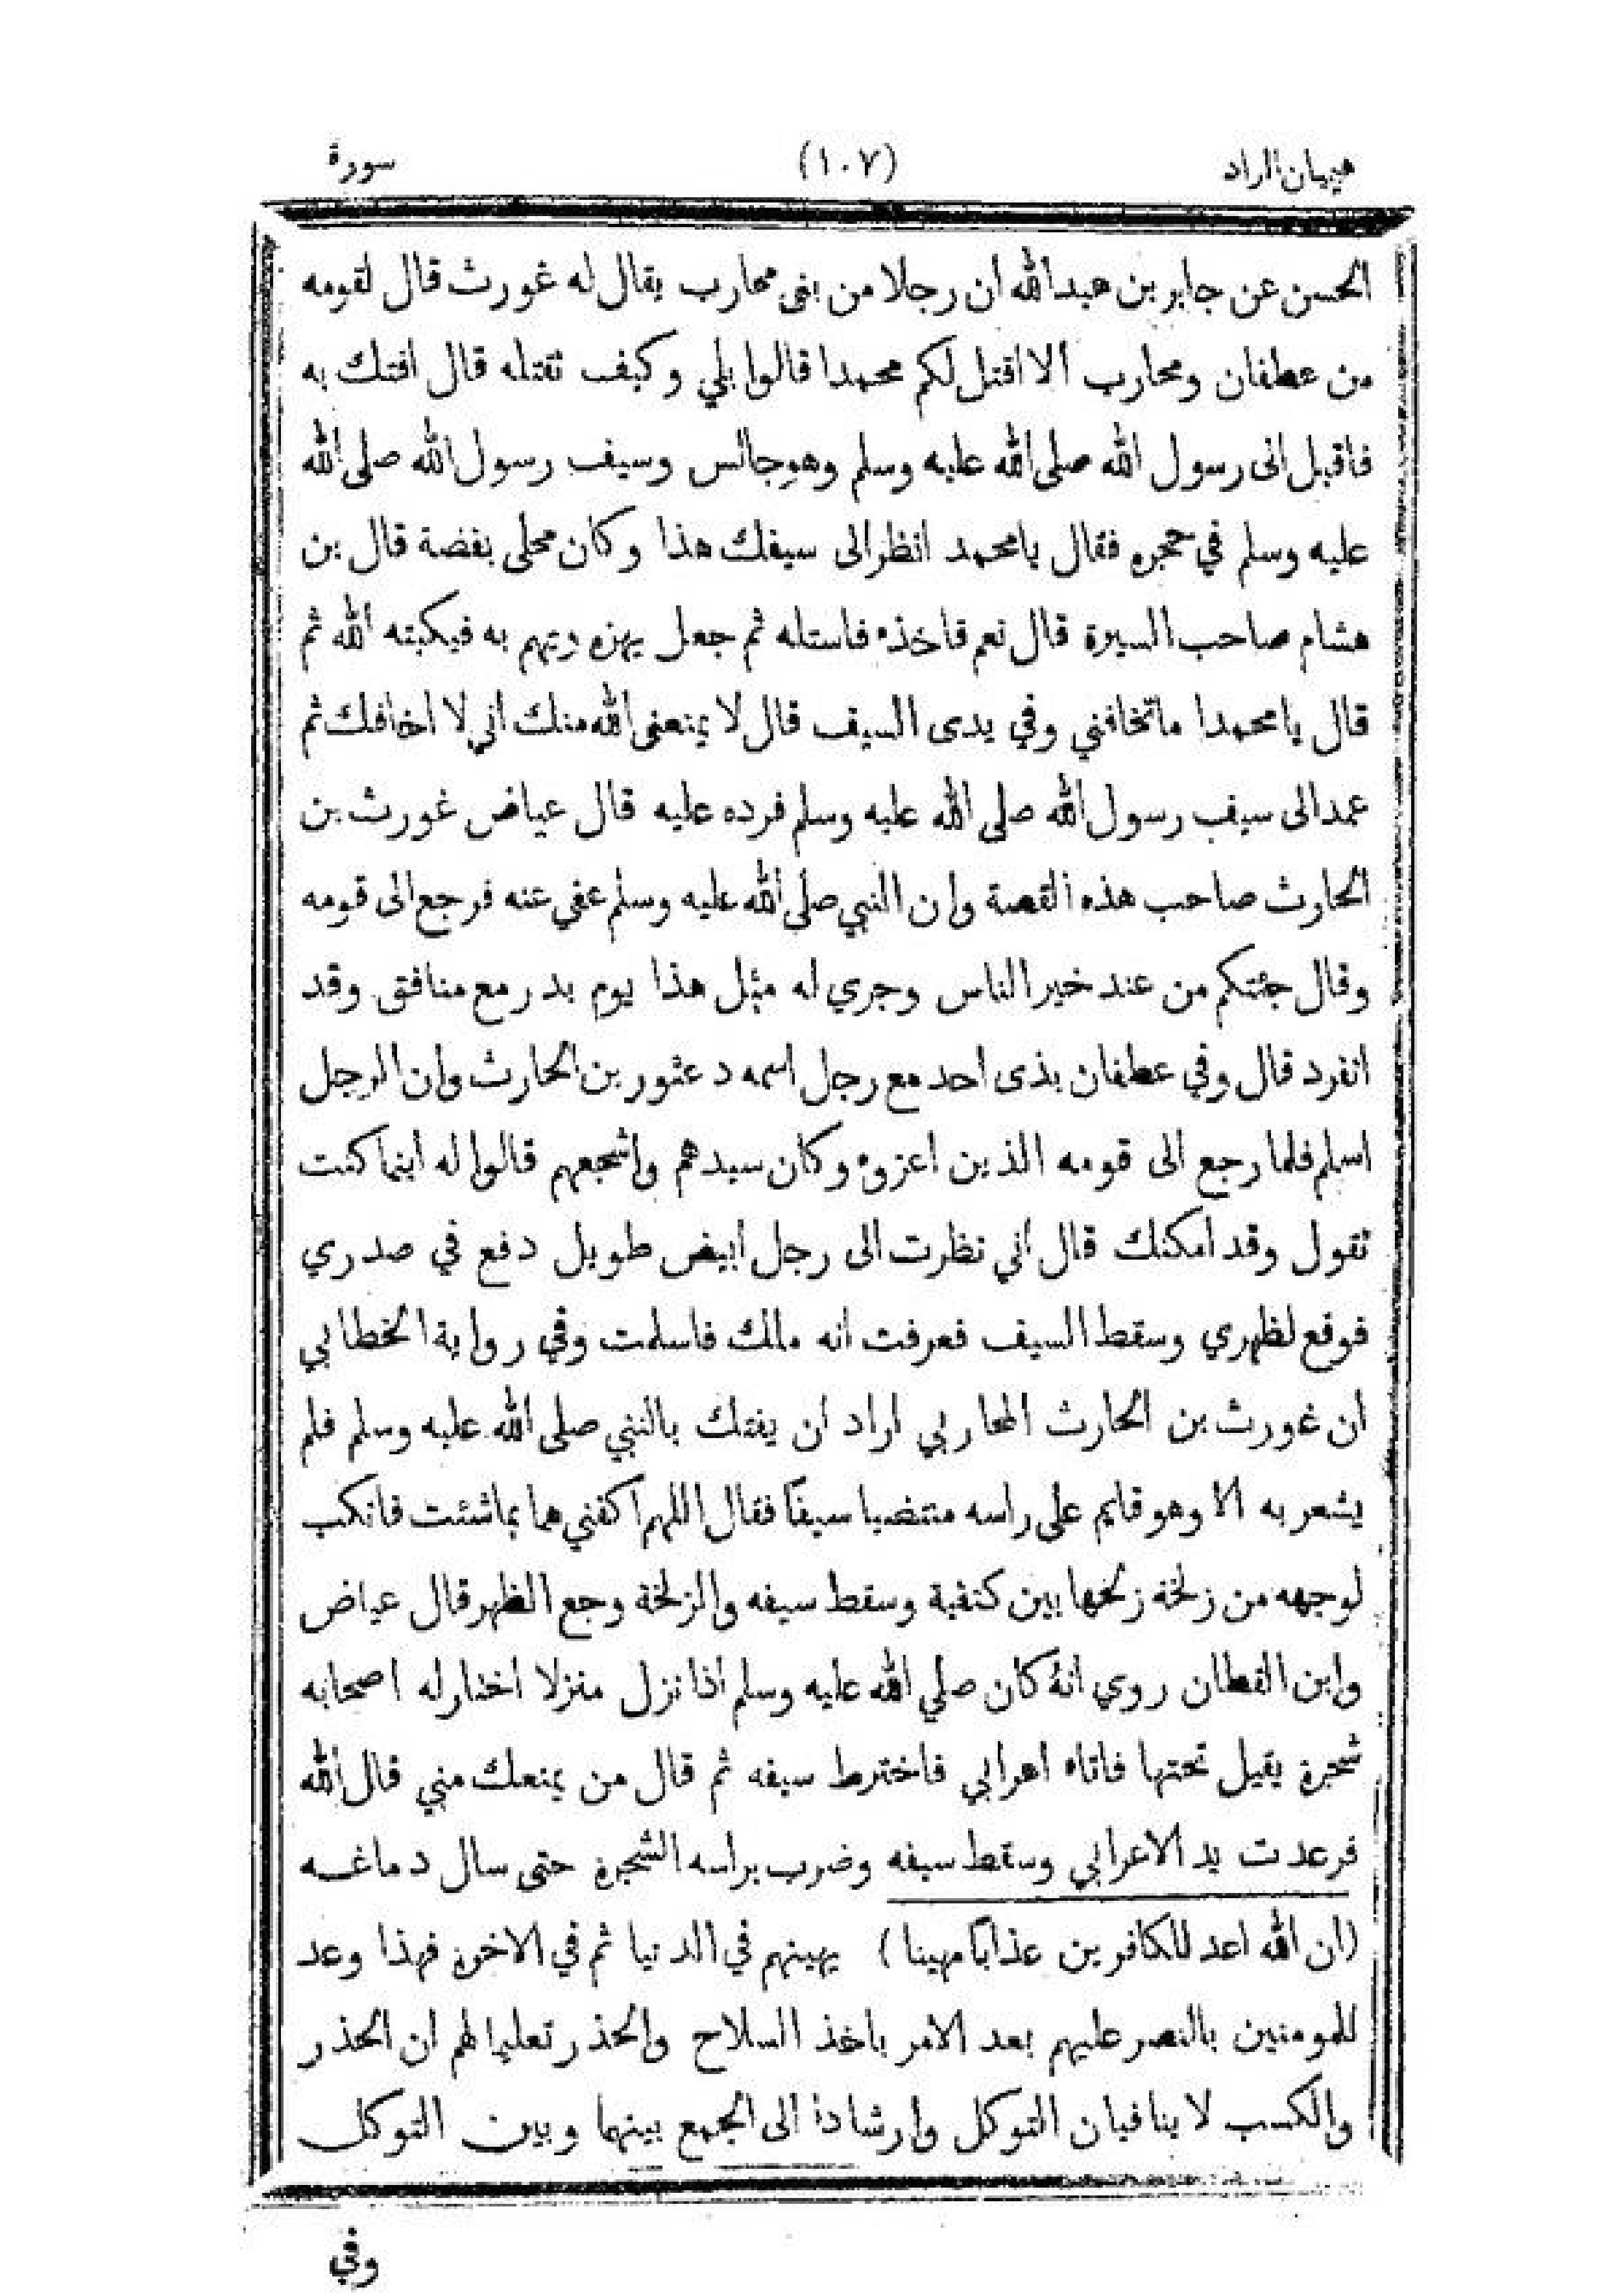 هيميان الزاد (١٠٧) سورة
الحسن عن جابر بن عبدالله ان رجلا من بنى محارب يقال له غورث قال لقومه
من عطفان ومحارب ألا اقتل لكم محمدا قالوا بلي وكيف تقتله قال افتك به
فاقبل الى رسول الله صلى الله عليه وسلم وهو جالس وسيف رسول الله صلى الله
عليه وسلم في حجره فقال يا محمد انظر الى سيفك هذا وكان محلى بفضة قال بن
هشام صاحب السيرة قال نعم فاخذه فاستله ثم جعل يهزه ويهم به فيكبته الله ثم
قال يا محمدا ما تخافني وفي يدى السيف قال لا يمنعنى الله منك اني لا اخافك ثم
عمد الى سيف رسول الله صلى الله عليه وسلم فرده عليه قال عياض غورث بن
الحارث صاحب هذه القصة وان النبي صلى الله عليه وسلم عفى عنه فرجع الى قومه
وقال جئتكم من عند خير الناس وجري له مثل هذا يوم بدر مع منافق وقد
انفرد قال وفي عطفان بذى احد مع رجل اسمه دعثور بن الحارث وان الرجل
اسلم فلما رجع الى قومه الذين اعزوه وكان سيدهم واشجعهم قالوا له اينما كنت
تقول وقد امكنك قال اني نظرت الى رجل ابيض طويل دفع في صدري
فوقع لظهري وسقط السيف فعرفت انه ملك فاسلمت وفي رواية الخطابي
ان غورث بن الحارث المحاربي اراد ان يفتك بالنبي صلى الله عليه وسلم فلم
يشعر به الا وهو قايم على راسه منتضيا سيفا فقال اللهم اكفني هما بما شئت فانكب
لوجهه من زلخة زلخها بين كتفية وسقط سيفه والزلخة وجع الظهر قال عياض
وابن القطان روي انه كان صلي الله عليه وسلم اذا نزل منزلا اختار له اصحابه
شجرة يقيل تحتها فاتاه اعرابي فاخترط سيفه ثم قال من يمنعك مني قال الله
فرعدت يد الاعرابي وسقط سيفه وضرب براسه الشجرة حتى سال دماغه
(ان الله اعد للكافرين عذابا مهينا) يهينهم في الدنيا ثم في الاخرة فهذا وعد
للمومنين بالنصر عليهم بعد الامر باخذ السلاح والحذر تعليما لهم ان الحذر
والكسب لا ينافيان التوكل وارشادا الى الجمع بينهما وبين التوكل
وفي